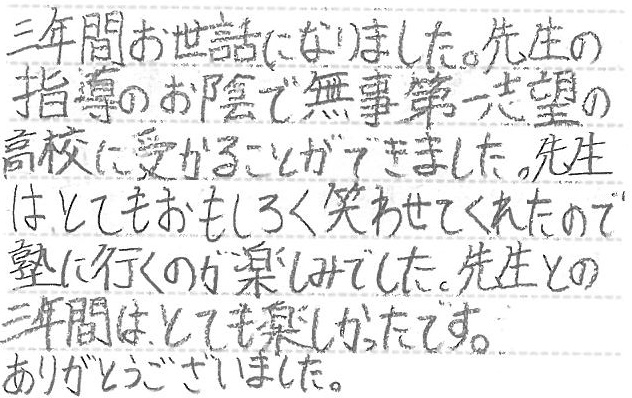 三年間お世話になりました。先生の
指導のお陰で無事第一志望の
高校に受かることができました。先生
は、とてもおもしろく笑わせてくれたので
塾に行くのが楽しみでした。先生との
三年間は、とても楽しかったです。
ありがとうございました。